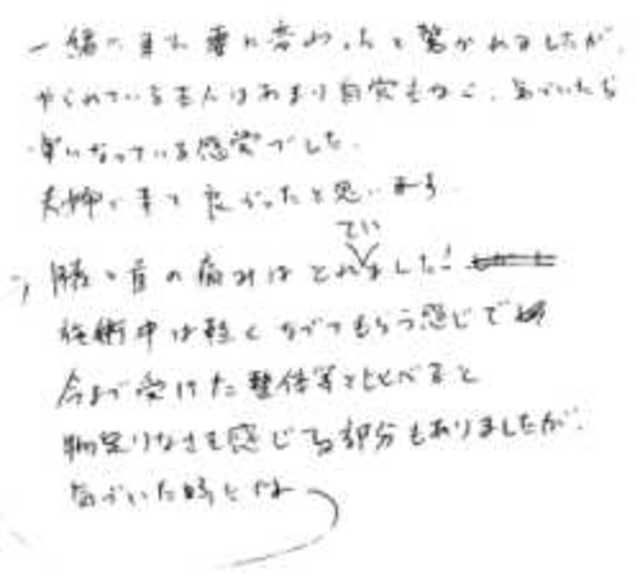 一緒に来た妻に変わったと驚かれましたが、
やられている本人はあまり自覚もなく、気づいたら
楽になっている感覚でした。
夫婦で来て良かったと思います。
てい
膝と首の痛みはとれました!
施術中は軽くなでてもらう感じで
今まで受けた整体等と比べると
物足りなさを感じる部分もありましたが、
気づいた時には